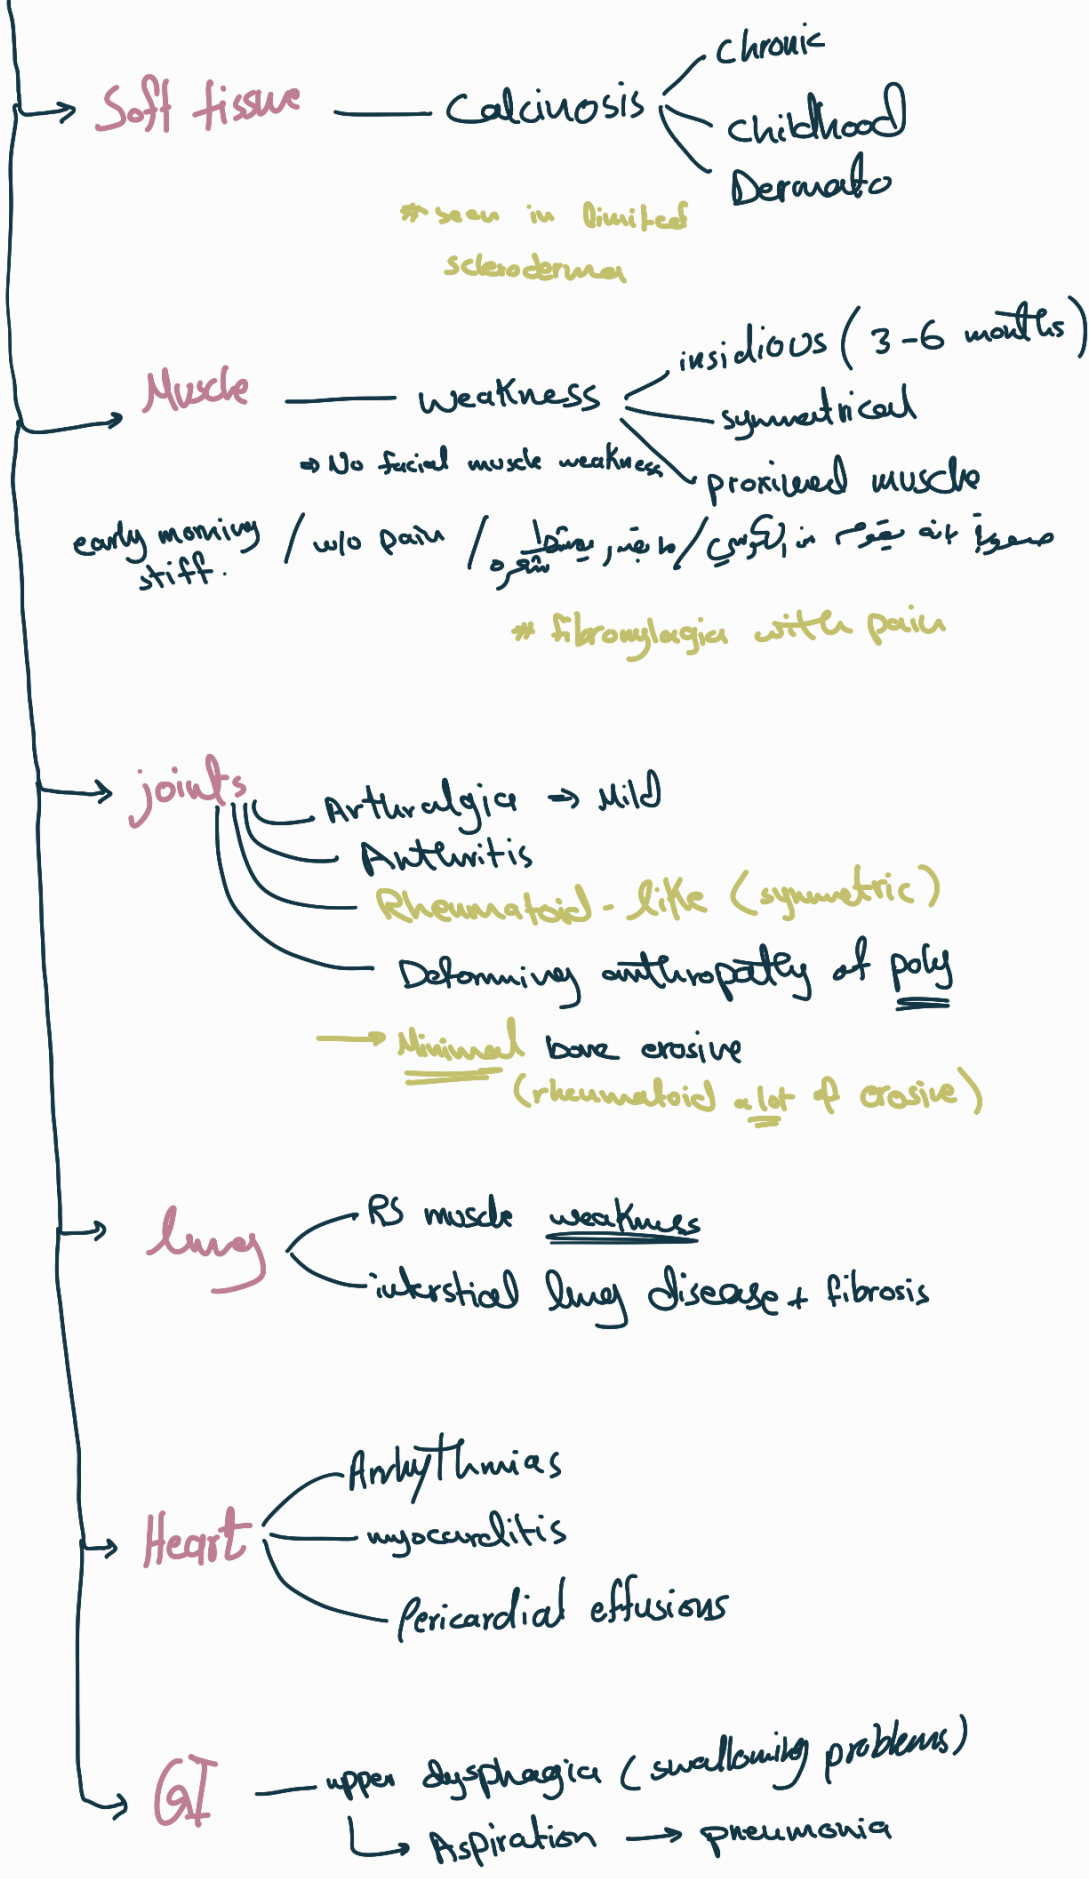 Soft tissue — Calcinosis
chronic
childhood
Dermato
* seen in limited
scleroderma
Muscle — weakness
insidious (3-6 months)
symmetrical
proximal muscle
⇒ No facial muscle weakness
early morning stiff. / w/o pain / ما يقدر يمشط شعره / صعوبة بانه يقوم من الكرسي
* fibromylagia with pain
joints
Arthralgia → Mild
Arthritis
Rheumatoid-like (symmetric)
Deforming arthropathy of poly
→ Minimal bone erosive
(rheumatoid a lot of erosive)
lung
RS muscle weakness
interstial lung disease + fibrosis
Heart
Arrhythmias
myocarditis
Pericardial effusions
GI — upper dysphagia (swallowing problems)
→ Aspiration → pneumonia